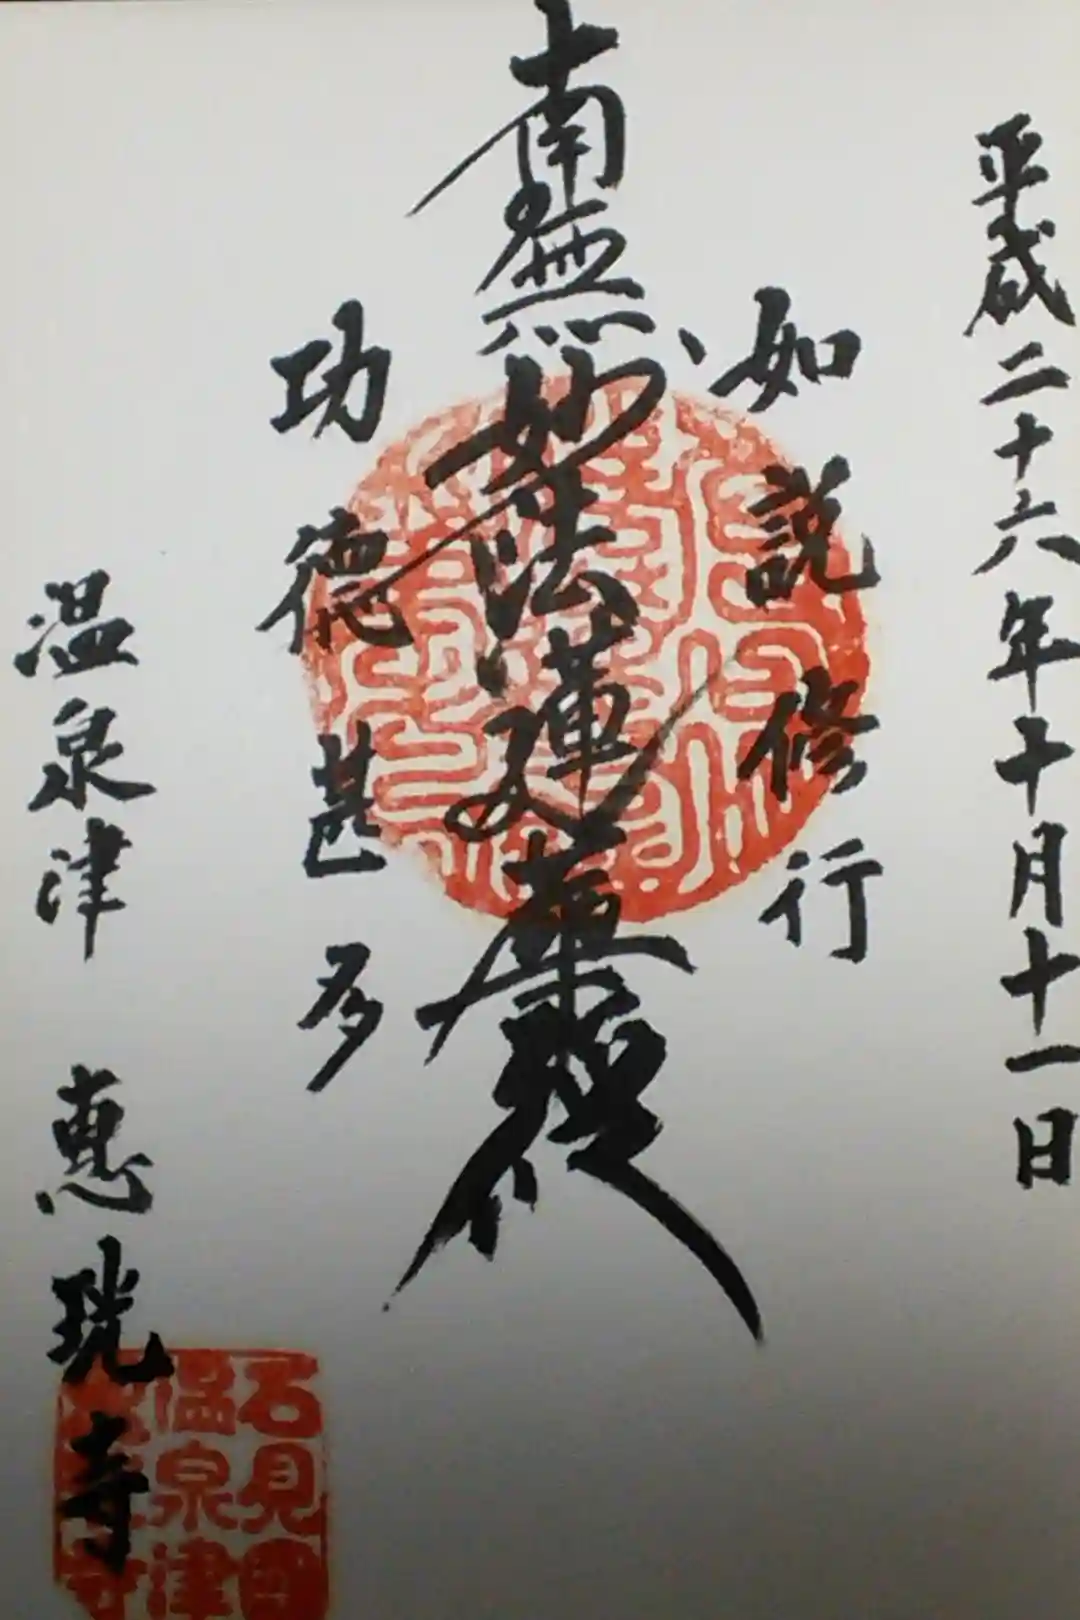 平成二十六年十月十一日
如説修行
南無妙法蓮華経
功徳甚多
温泉津 恵珖寺
石見国
温泉津